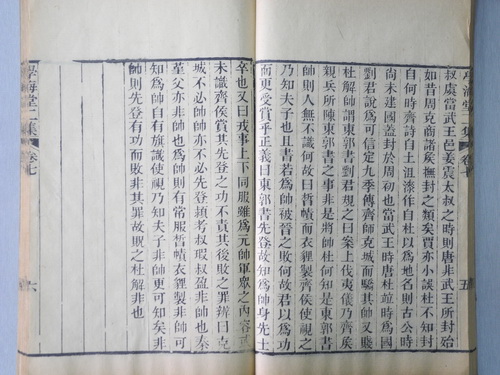 學海堂二集
卷七
五
叔虞當武王邑姜震太叔之時則唐非武王所封殆
如昔周克商諸矦撫封之類矣賈亦小誤杜不知封
自何時齊詩自土沮漆作自杜以為地名則古公時
尚未建國蓋封於周初也當武王時唐杜竝時為國
劉君說為可信定九季傳齊師克城而驕其帥又賤
杜解謂東郭書劉君規之曰案上伐夷儀乃齊矦
親兵所陳東郭書之事非是將帥杜何知是東郭書
帥則人無不識何故曰晳幘而衣貍製齊矦使視之
乃知夫子也且書若為帥被晉之敗何故君以為功
而更受賞乎正義曰東郭書先登故知為帥身先士
卒也又曰戎事上下同服雖為元帥軍眾之內容或
未識齊矦賞其先登之功不責其後敗之罪辯曰克
城不必師帥亦不必先登潁考叔瑕叔盈非帥也秦
堇父亦非帥也為帥則有常服晳幘衣貍製非帥可
知為帥自有旗識使視乃知夫子非帥更可知矣非
帥則先登有功而敗非其罪故貺之杜解非也
學海堂二集
卷七
六